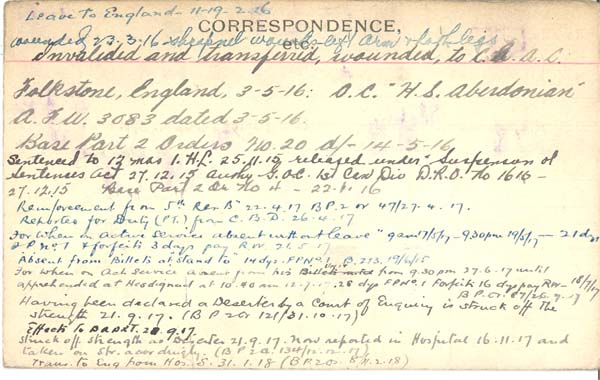 Leave to England - 11-19.2.26
CORRESPONDENCE,
etc.
wounded 23.3.16 shrapnel wounds left arm & both legs
Invalided and transferred, wounded, to C.A.A.C.
Folkstone, England, 3-5-16: O.C. "H.S. Aberdonian"
A.F.W. 3083 dated 3-5-16.
Base Part 2 Orders No. 20 d/- 14-5-16
Sentenced to 12 mos I.H.L. 25.11.15, released under Suspension of
Sentences Act 27.12.15 G.O.C. 1st Can Div D.R.O. No 1616 -
27.12.15 Base Part 2 Or No 4 - 22.1.16
Reinforcement from 5th Res Bn 22.4.17 B.P.2 or 47/27.4.17.
Reported for Duty (P.T.) from C.B.D. 26.4.17
For When on Active Service absent without leave" 9am 7/5/17 - 9.30pm 19/5/17 - 21 days
F.P. No 1 & forfeits 3 days pay R.W. 21.5.17
"Absent from Billets at Stand to" 14 dys. F.P. No 1. B.213, 19/6/15
For when on Act Service from his Billets from 9.30 pm 27.6.17 until
apprehended at Hesdigneul at 10.40 am 12-7-17. 28 dys F.P. No 1 Forfeits 16 dys pay R.W. 18/7/17
B.P. Or. 87/26.7.17
Having been declared a Deserter by a Court of Enquiry is struck off the
strength 21.9.17. (B P 2 Or 121/31.10.17)
Effects to 20.9.17.
Struck off strength as Deserter 21.9.17. Now reported in Hospital 16.11.17 and
taken on Str. accordingly. (B P 2 O. 134/12.12.17)
Trans. to Eng from Hos. S. 31.1.18 (B P 2 Or 2.18)